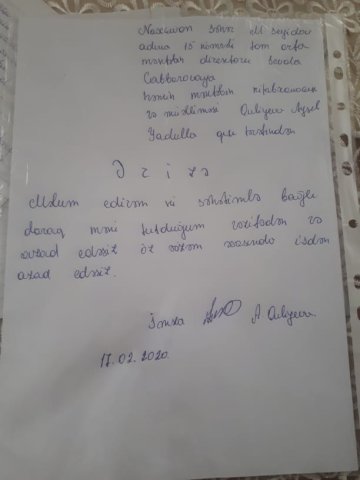 Naxcıvan şəhər M. Seyidov
adına 15 nömrəli tam orta
məktəbin direktoru Sevda
Cabbarovaya
həmin məktəbin kitabxanaçı
və müəlliməsi Quliyeva Aysel
Yadulla qızı tərəfindən
Ə r i z ə
Məlum edirəm ki səhhətimlə bağlı
olaraq məni tutduğum vəzifədən və
azad edəsiz öz ərizəm əsasında işdən
azad edəsiz.
İmza A. Quliyeva
17.02.2020.